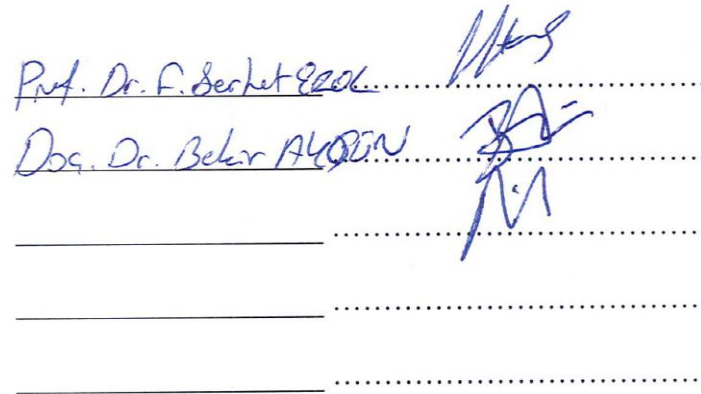 Prof. Dr. F. Serhat EROL
Doç. Dr. Bekir AKGÜN